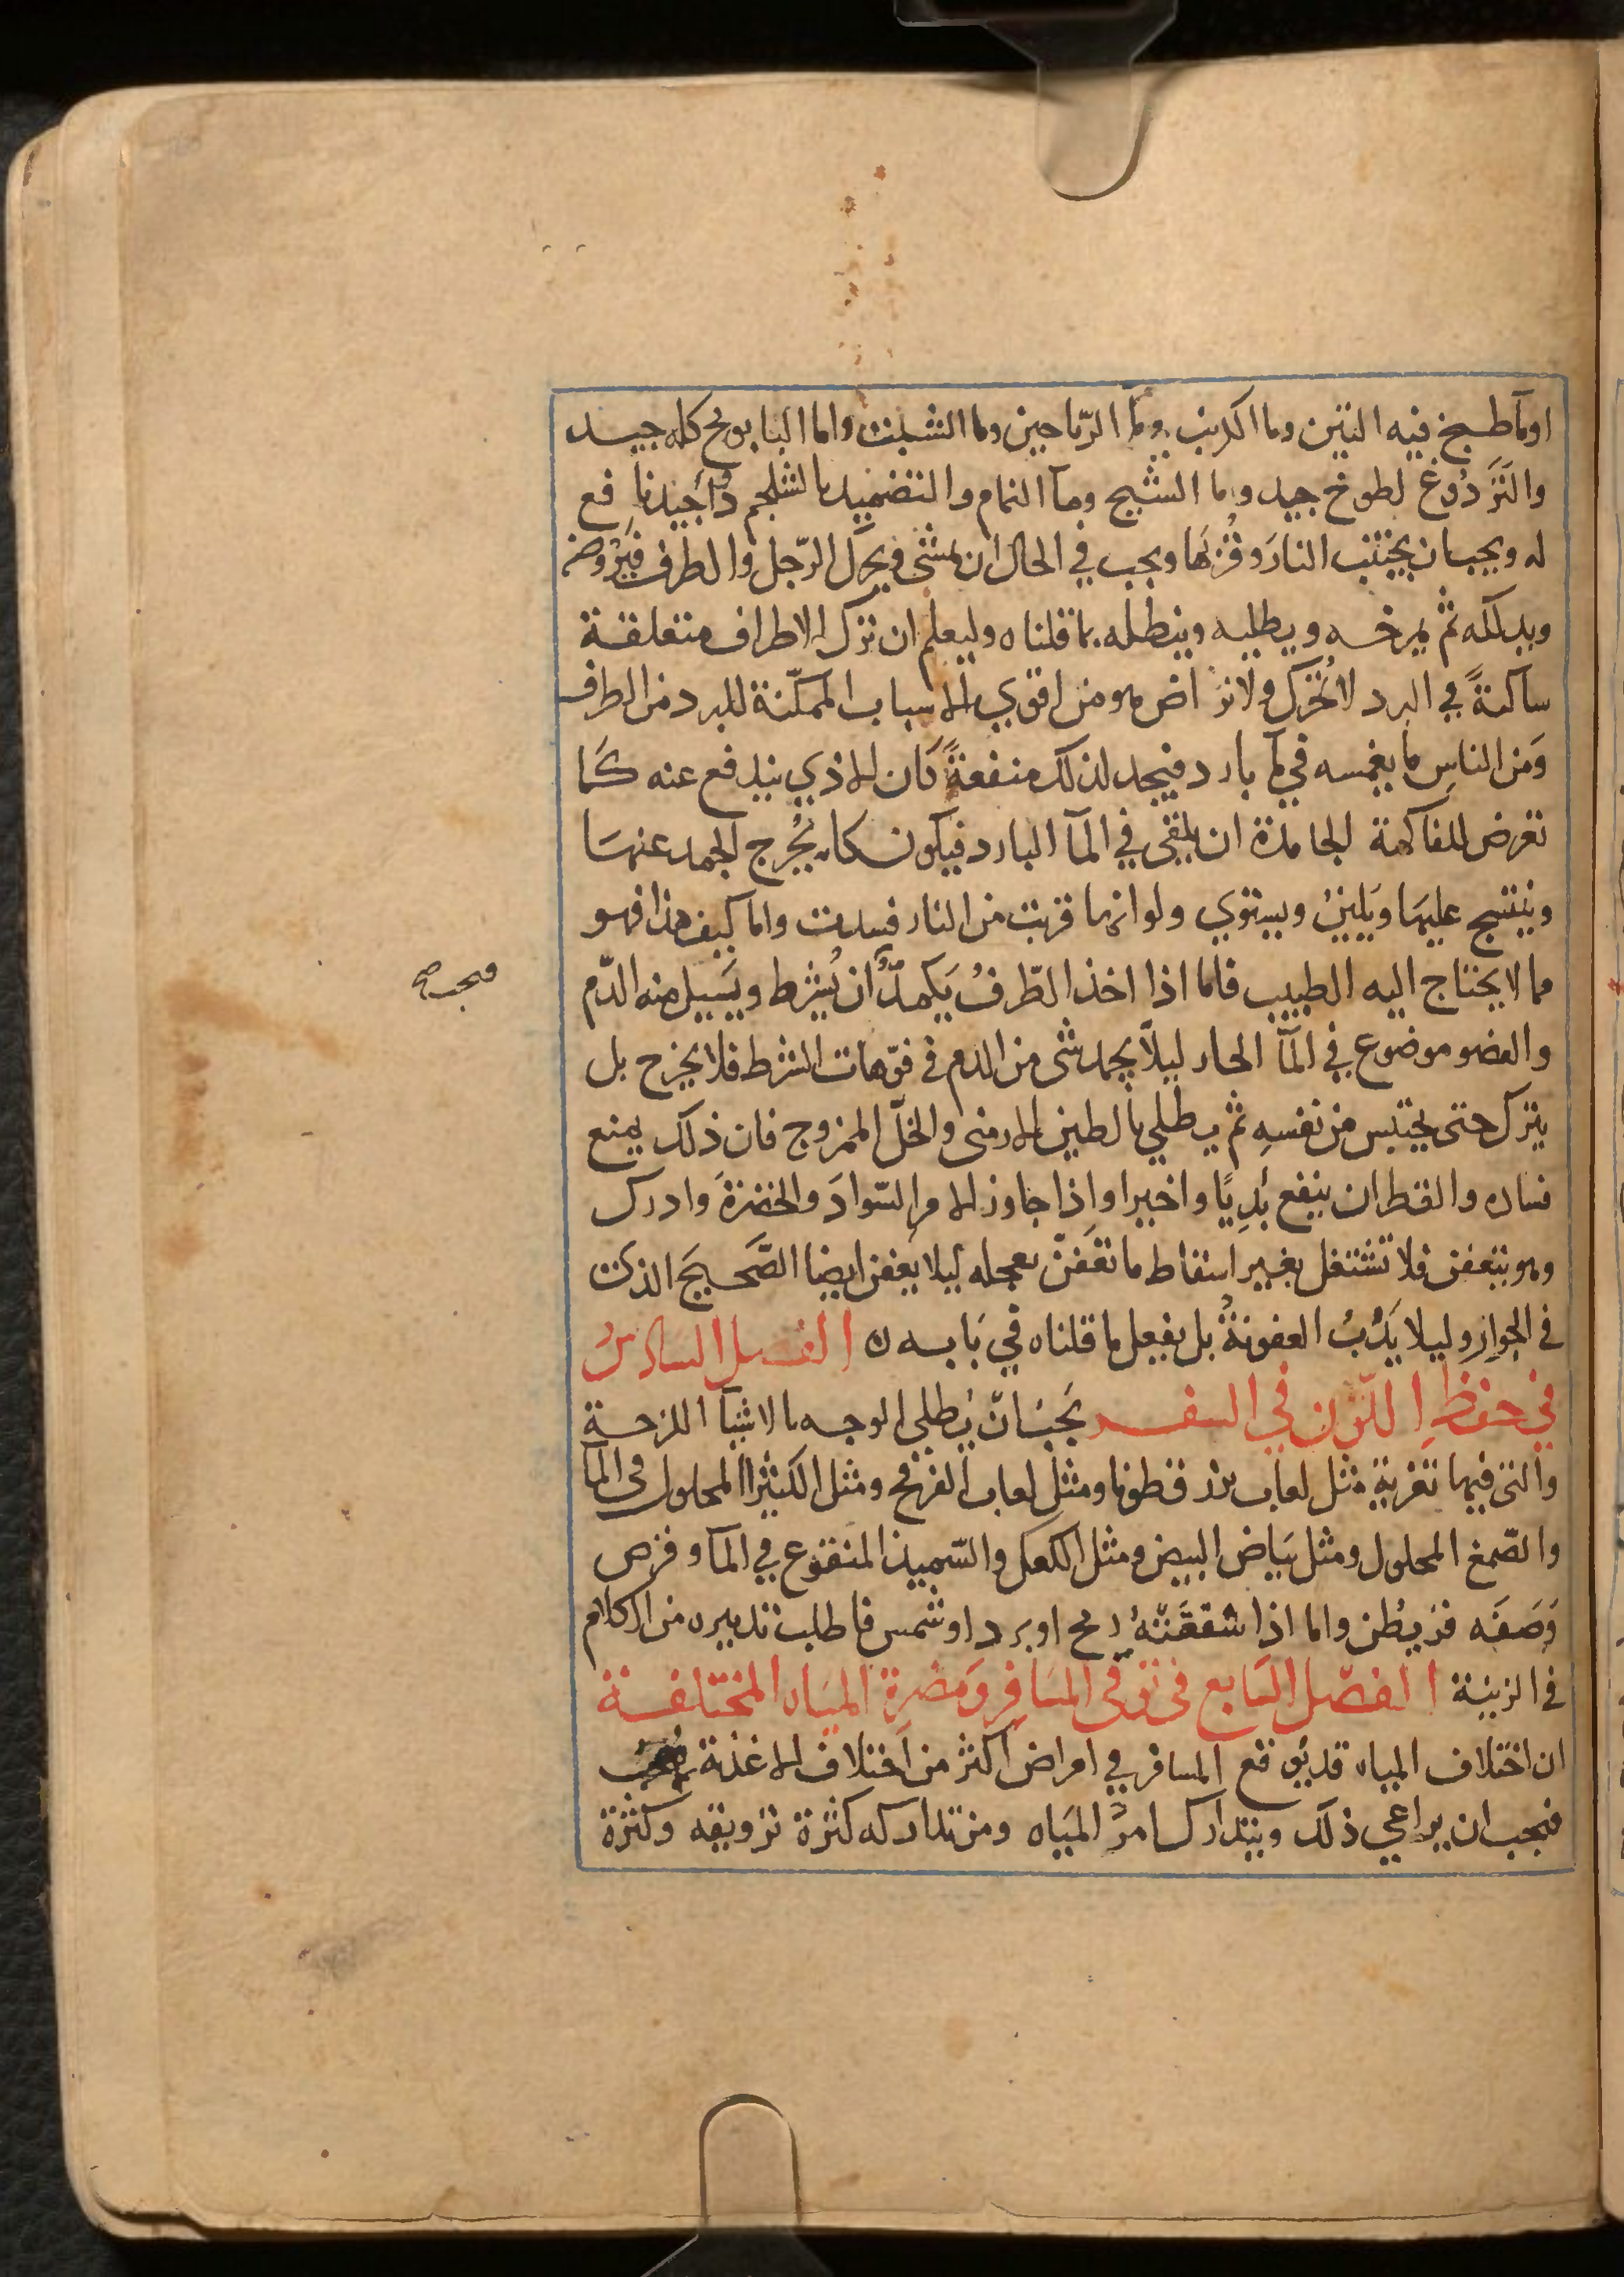 اوما طبخ فيه التين وما الكرنب وما الرّياحين وما الشبت واما البابونج كله جيد
والتَرَدُوغ لطوخ جيد وما الشيح وما النمام والتضميد بالشلجم دوآ جيد نافع
له ويجب ان يجتنب النارَ وقُرْبَها ويجب في الحال ان يمشي ويحرّك الرّجل والطرف فيروضه
ويدلكه ثم يمرخه ويطليه وينطله بما قلناه وليعلم ان ترك الاطراف متعلقة
ساكنةً في البرد لا تُحرّك ولا تراض هو من اقوي الاسباب الممكّنة للبرد من الطرف
وَمن الناسِ ما يغمسه في مآ بارد فيجد لذلك منفعةً كَان الاذي يندفع عنه كَما
تعرض للفاكهة الجامدة ان يلقي في المآ البارد فيكون كانه يُخرج الجمد عنهَا
وينتسج عليهَا ويَلينُ ويستوي ولو انها قربت من النار فسدت واما كيف هذا فهو
مما لا يحتاج اليه الطبيب فاما اذا اخذ الطّرفُ يَكمدُّ ان يُشرط ويَسيل منه الدّم
فيجب صح
والعضو موضوع في المآ الحار ليلّا يجمد شى من الدم في فوّهات الشرط فلا يخرج بل
يترك حتى يحتبس من نفسهِ ثم يطلي بالطين الارمنى والخلّ الممزوج فان ذلك يمنع
فساده والقطران ينفع بَدِيًا واخيرا واِذا جاوز الامر السّوادَ والخضرةَ وادرك
وهو يتعفن فلا تشتغل بغير اسقاط ما تعَفنّ بعجله ليلا يعفن ايضا الصَّحيحَ الذي
في الجوارِ وليلا يَدُبُ العفونةُ بل يفعل ما قلناه في بَابه ن الفصل السادسُ
في حفظِ اللّون في السفر يَجبُ انّ يُطلي الوجه بالاشيآ اللزجة
والتى فيها تغرية مثل لعاب بزر قطونا ومثل لعاب العرفج ومثل الكثيرا المحلول في المآ
والصّمغ المحلول ومثل بَياض البيض ومثل الكعك والسّميذ المنقوع في المآ وقرص
وَصَفَه قريطن واما اذا شققَتْهُ ريح او برد او شمس فاطلب تدبيره من الكلام
في الزينة الفصْل السَابع في توقي المسَافر وَمضرةِ الميَاه المختلفة
ان اختلاف المياه قد يوقع المسافر في امراض اكثر من اختلاف الاغذية
فيجب ان يراعي ذلك ويتدارك امرَ الميَاه ومن تداركه كثرة ترويقه وكثرة